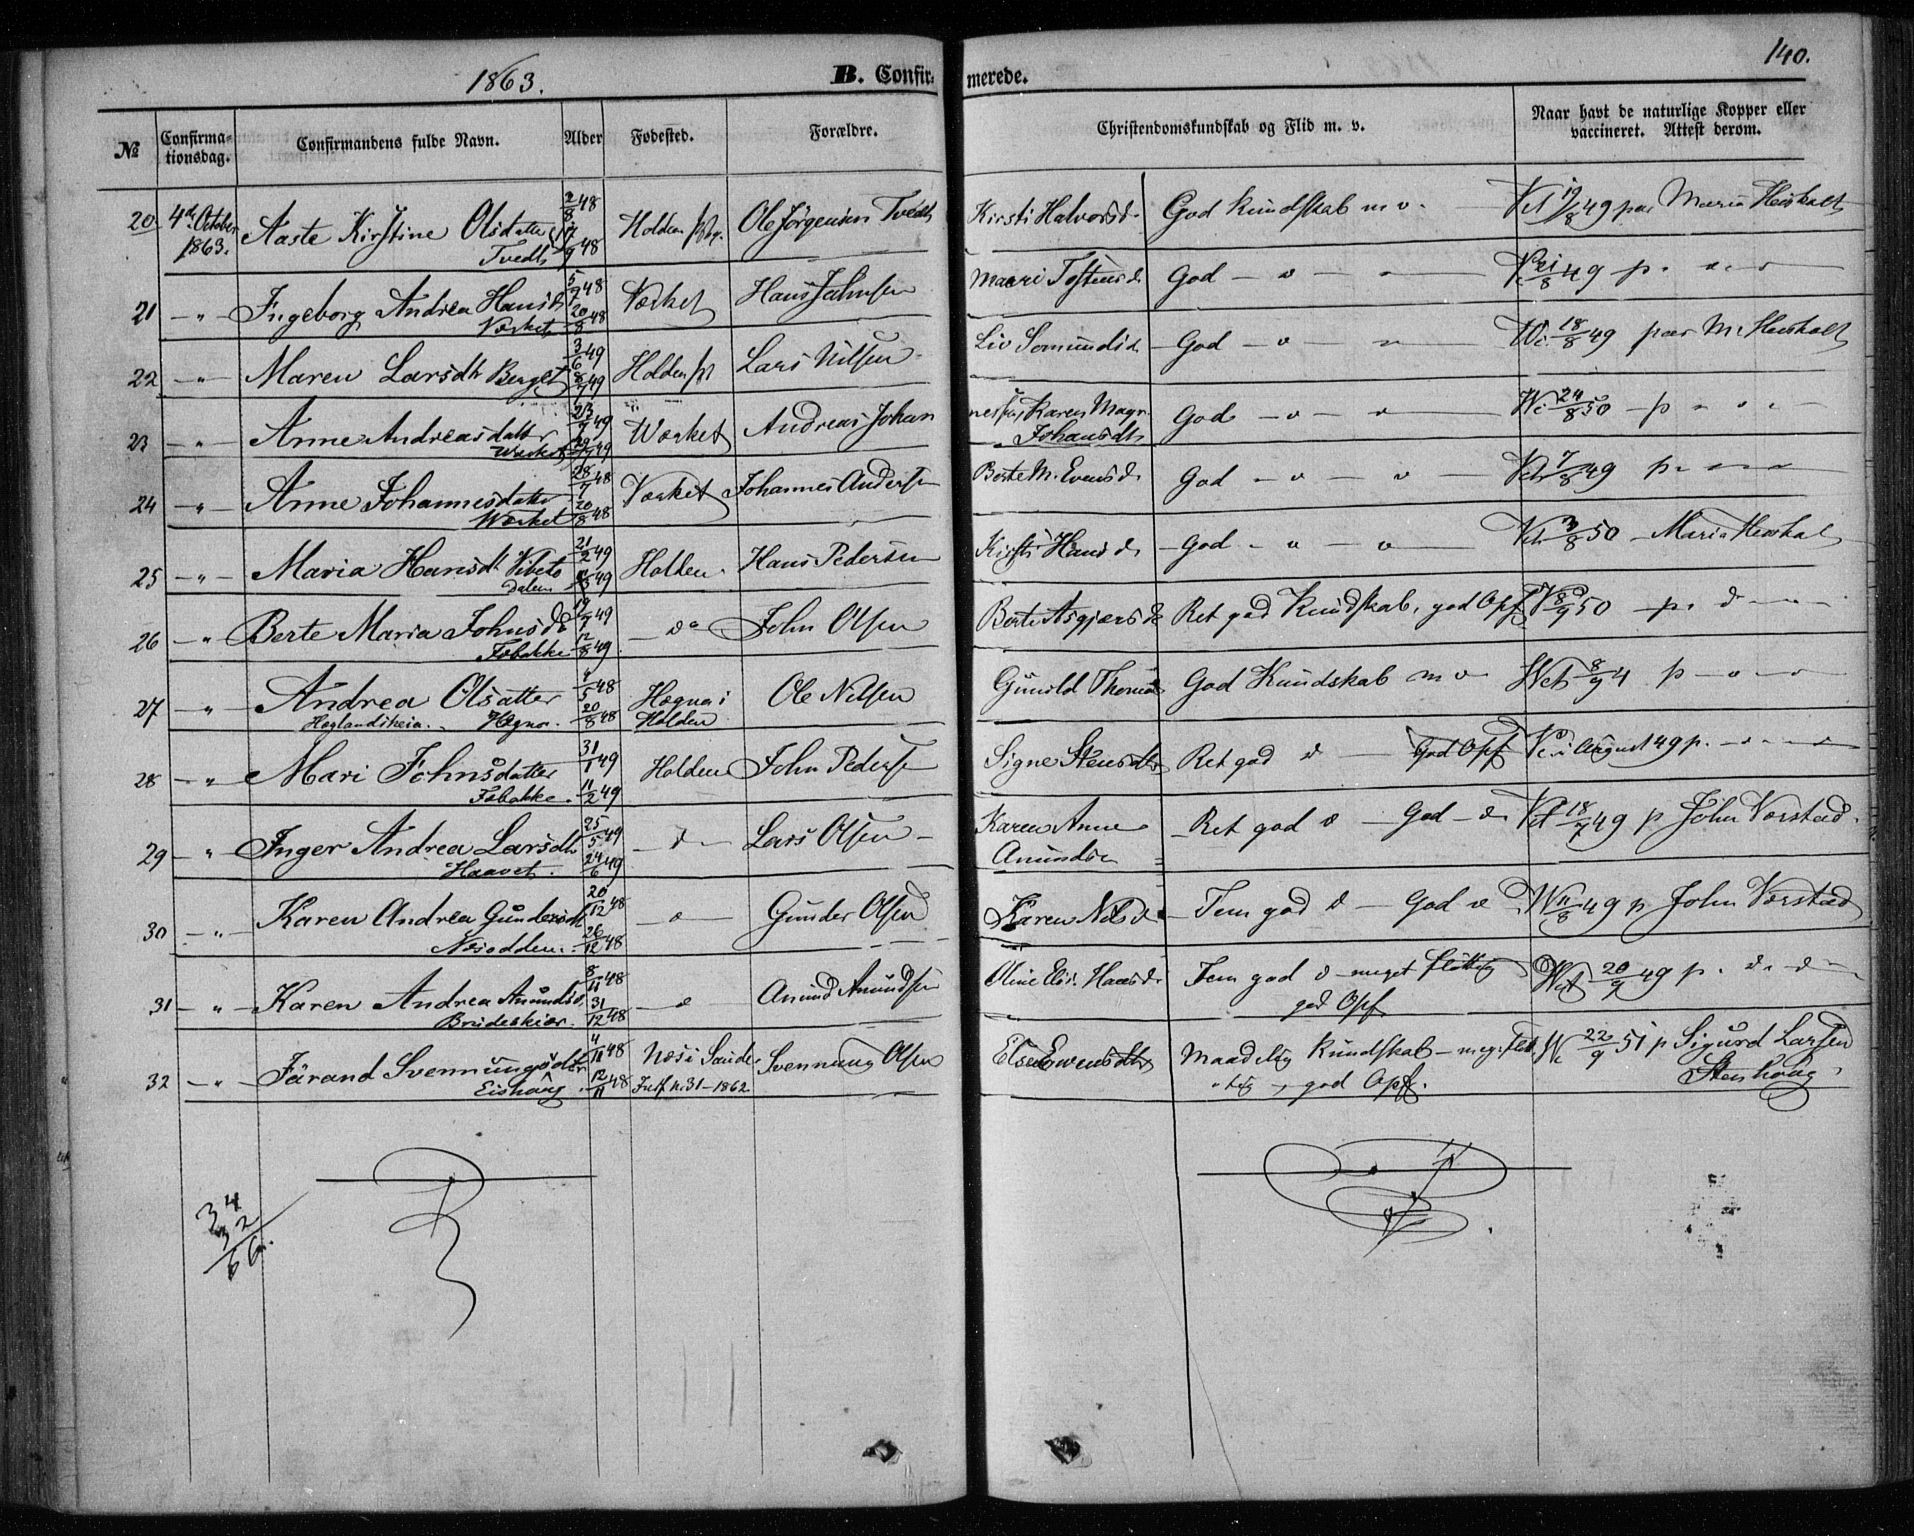 1863.
B. Confirmerede.
140.
No Confirmationsdag. Confirmandens fulde Navn. Alder Fødested. Forældre. Christendomskundskab og Flid m. v. Naar havt de naturlige Kopper eller vaccineret. Attest derom.
20 4de October 1863. Aaste Kirstine Olsdatter Tvedt 2/8 48 /9 48 Holden Ole Jørgensen Tvedt Kirsti Halvorsd. God Kundskab m v. 19/8 49 par Maria Heishalt
21 -"- Ingeborg Andrea Hansd. Værket 5/7 48 20/8 48 Værket Hans Jahnsen Maari Tostensd. God - o - 21/8 49 p.
22 -"- Maren Larsdtr Berget 3/6 49 8/7 49 Holden Lars Nilsen Liv Somundsd. God - o - 18/8 49 par M. Heishalt
23 -"- Anne Andreasdatter Værket 23/7 49 49 Værket Andreas Johannes Karen Magn. Johansdtr God - o - o 24/8 50 - p
24 -"- Anne Johannesdatter Værket 28/7 48 20/8 48 Værket Johannes Andersen Berte M. Evensd. God - o - o 7/8 49 p
25 -"- Maria Hansdtr Vibeto dalen 21/2 49 49 Holden Hans Pedersen Kirsti Hansd. God - o - o 3/8 50 - Maria Heishalt
26 -"- Berte Maria Johnsd. Fobakke 19/7 49 12/8 49 do John Olsen Berte Asgjersd. Ret god Kundskab, god Opf 8/9 50 - p. d
27 " Andrea Olsatter Høglandsheia. Hægna. 4/5 48 20/8 48 Hægna i Holden Ole Nilsen Gunild Thomd. God Kundskab m v 8/9 4 p
28 -"- Mari Johnsdatter Fobakke. 31/1 49 11/2 49 Holden John Pedersen Signe Stensdtr Ret god d - God Opf i August 49 p.
29 -"- Inger Andrea Larsdtr Haavet. 25/5 49 24/6 49 d Lars Olsen Karen Anne Amunds Ret god d - God - d 18/7 49 p John Vorstad.
30 -"- Karen Andrea Gundersdtr Næsodden. 20/12 48 26/12 48 o Gunder Olsen Karen Nelsd. Tem god d - God d 11/8 49 p John Vorstad
31 -"- Karen Andrea Amundsd. Brudeskiær. 8/11 48 31/12 48 o Amund Amundsen Oline Elis. Hansd. Tem god d - meget flittig god Opf 20/9 49 p. d. d
32 -"- Jørand Svennungsdtr Eishaug 4/11 48 12/11 48 Næs i Saude Indf. n. 31 - 1862. Svennung Olsen Else Evensdtr Maadelig Kundskab - meg. flit tig, god Opf. 22/9 51 p Sigurd Larsen Stenhaug
34
32
66.